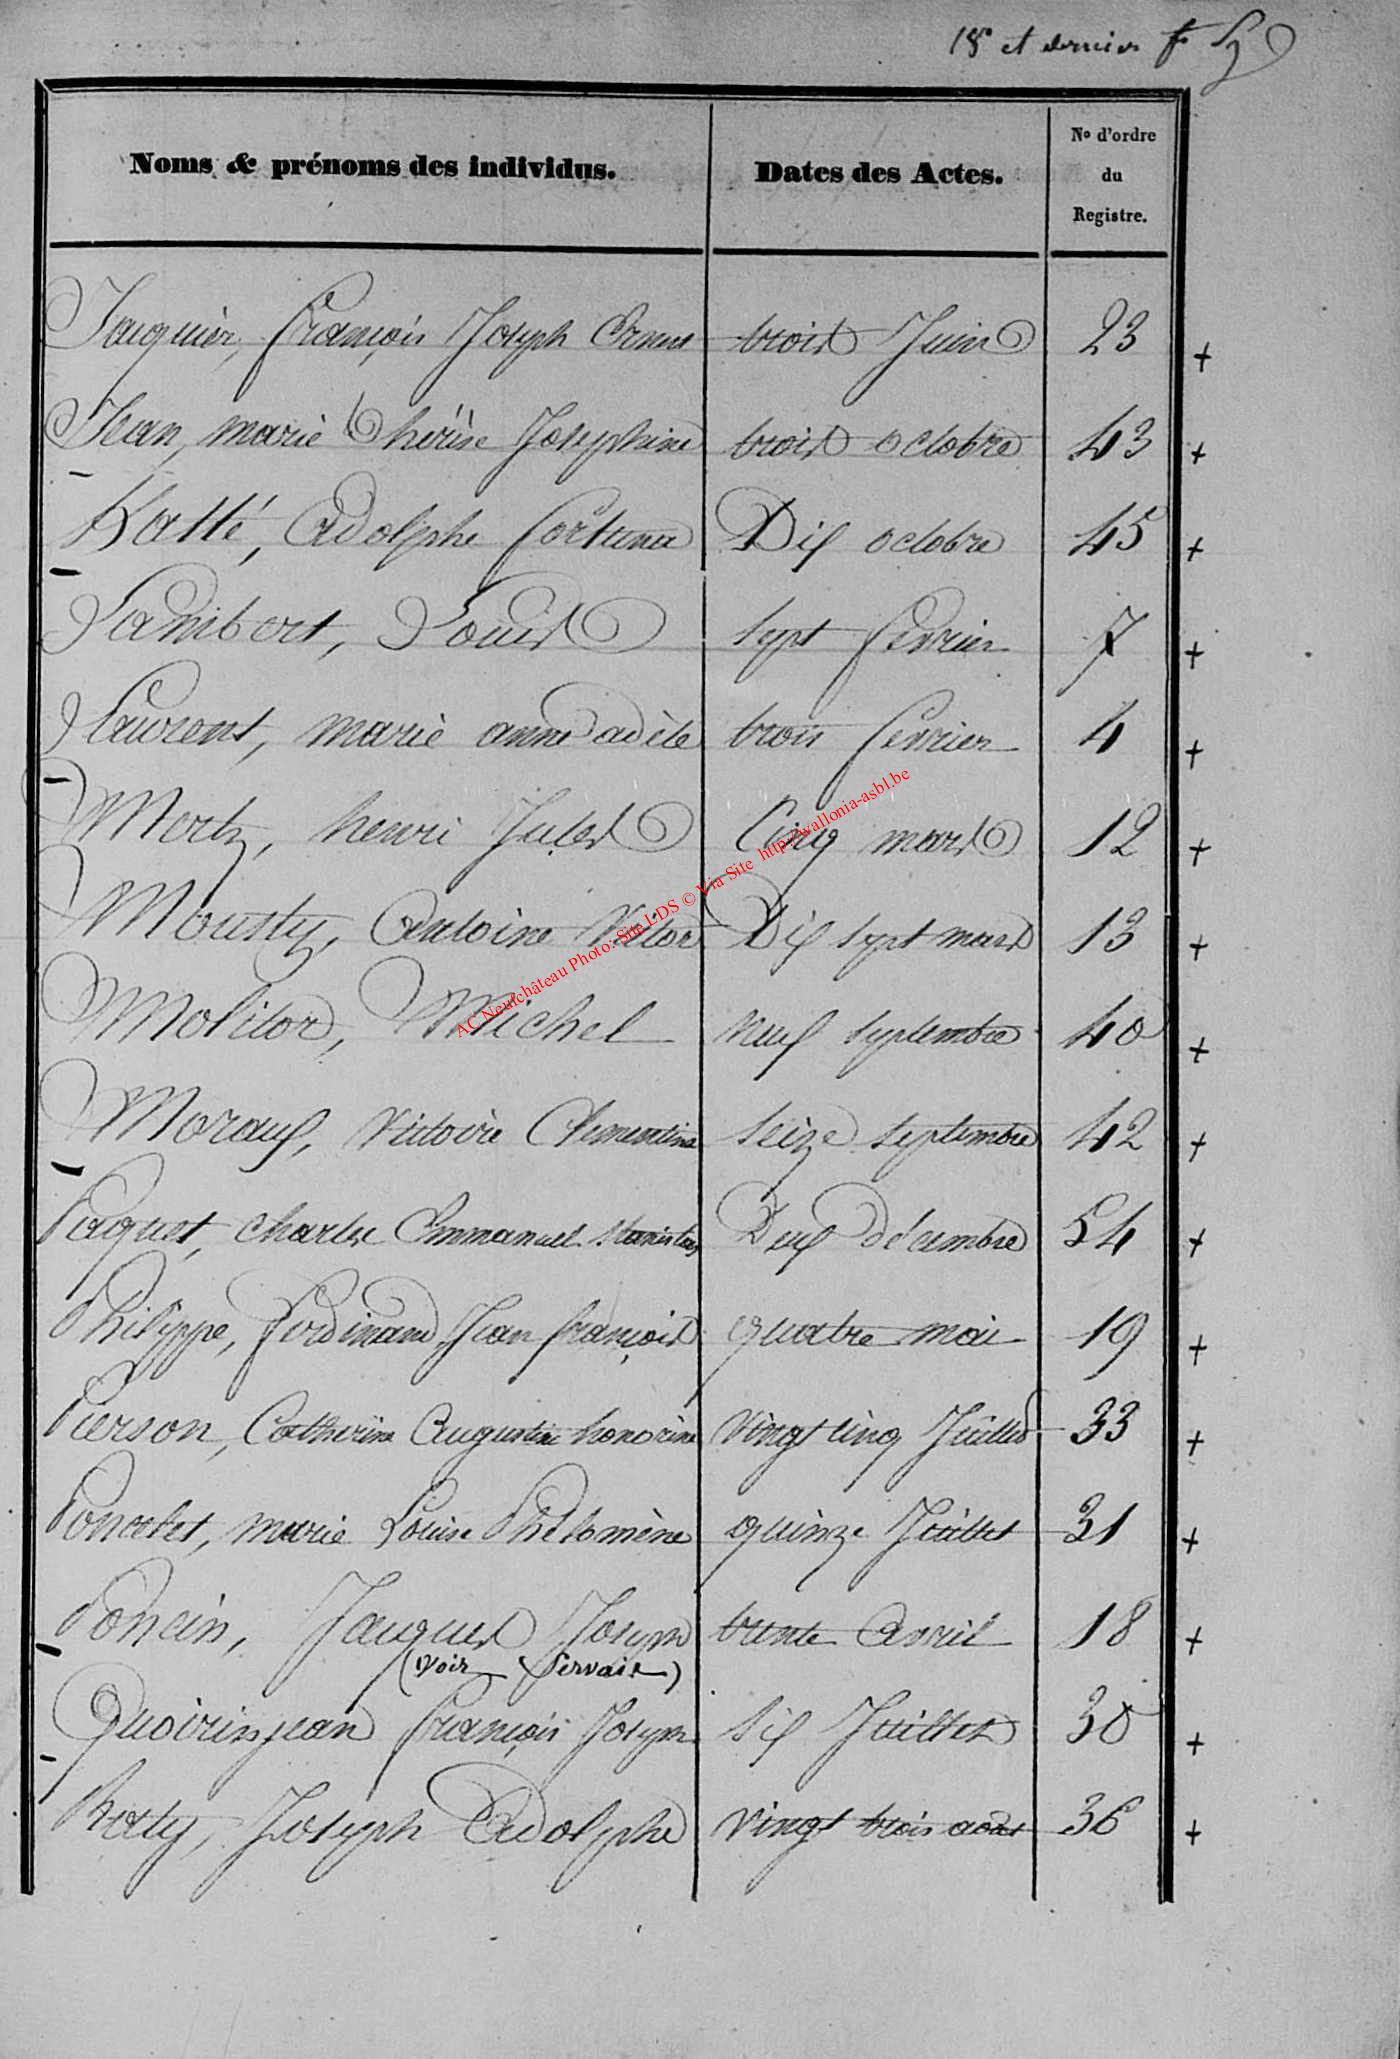 18e et dernier f
Noms & prénoms des individus. Dates des Actes. No d'ordre
du
Registre.
Jacquier, françois Joseph Ernest trois Juin 23 +
Jean, marie thérèse Joséphine trois octobre 43 +
Katté, Adolphe fortuné Dix octobre 45 +
Lambert, Louis sept fevrier 7 +
Laurent, marie anne adèle trois fevrier 4 +
Mertz, henri Jules Cinq mars 12 +
Mousty, Antoine Victor Dix sept mars 13 +
Molitor, Michel neuf septembre 40 +
Moraux, Victoire Clementine seize septembre 42 +
Paquet, charles Emmanuel Stanislas Deux décembre 54 +
Philippe, ferdinand Jean françois quatre mai 19 +
Pierson, Catherine Augustine honorine vingt cinq Juillet 33 +
Poncelet, marie Louise Philomène quinze Juillet 31 +
Poncin, Jacques Joseph trente Avril 18 +
(voir Servais)
Quoirinjean françois Joseph six Juillet 30 +
Raty, Joseph Adolphe vingt trois aout 36 +
AC Neufchâteau Photo: Site LDS © Via Site http://wallonia-asbl.be